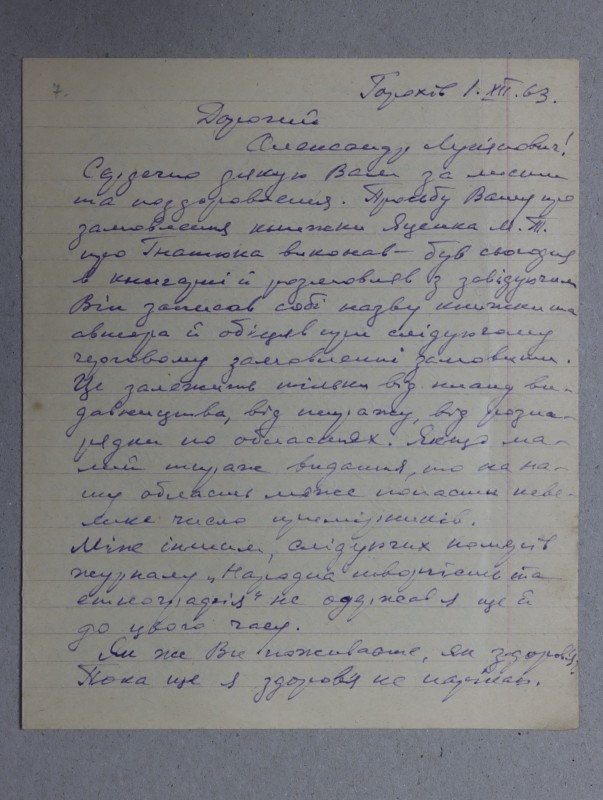 7.
Горохів 1.XII.63.
Дорогий
Олександр Лукіянович!
Сердечно дякую Вам за листи
та поздоровлення. Просьбу Вашу про
замовлення книжки Яценка М. Т.
про Гнатюка виконав – був сьогодня
в книгарні й розмовляв з завідуючим
Він записав собі назву книжки та
автора й обіцяв при слідуючому
черговому замовленні замовити.
Це залежить тільки від плану ви-
давництва, від тиражу, від розна-
рядки по областях. Якщо ма-
лий тираж видання, то на на-
шу область може попасти неве-
лике число примірників.
Між іншим, слідуючих номерів
журналу „Народна творчість та
етнографія" не одержав я ще й
до цього часу.
Як же Ви поживаєте, як здоровя?
Пока ще я здоровя не